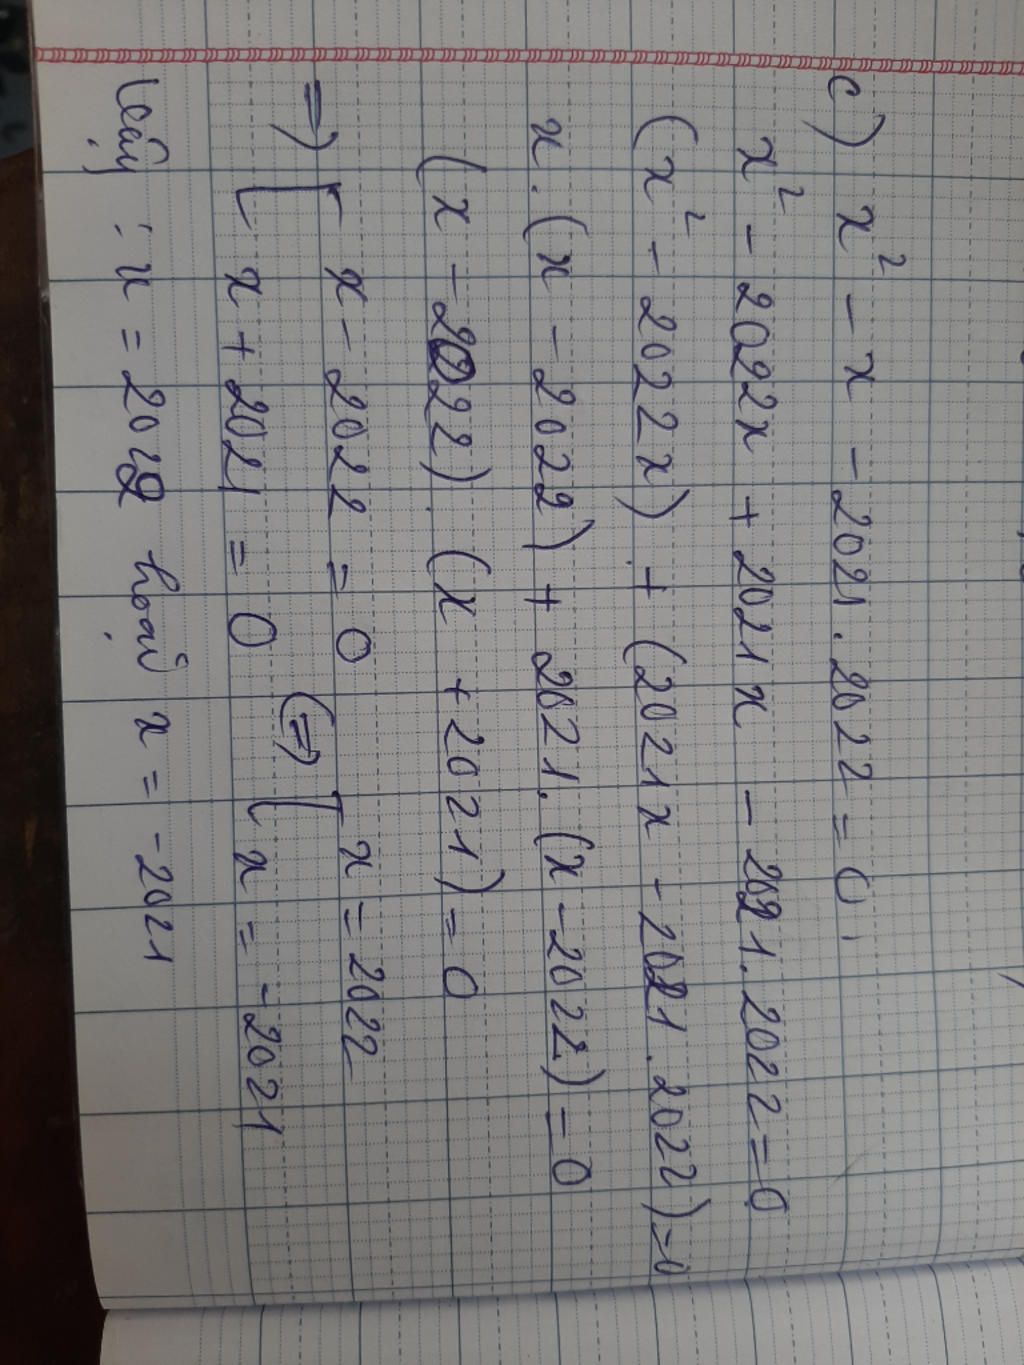 c) x² - x - 2021.2022 = 0
x² - 2022x + 2021x - 2021.2022 = 0
(x² - 2022x) + (2021x - 2021.2022) = 0
x.(x - 2022) + 2021.(x - 2022) = 0
(x - 2022).(x + 2021) = 0
=> [ x - 2022 = 0 <=> [ x = 2022
x + 2021 = 0 x = -2021
Vậy : x = 2022 hoặc x = -2021